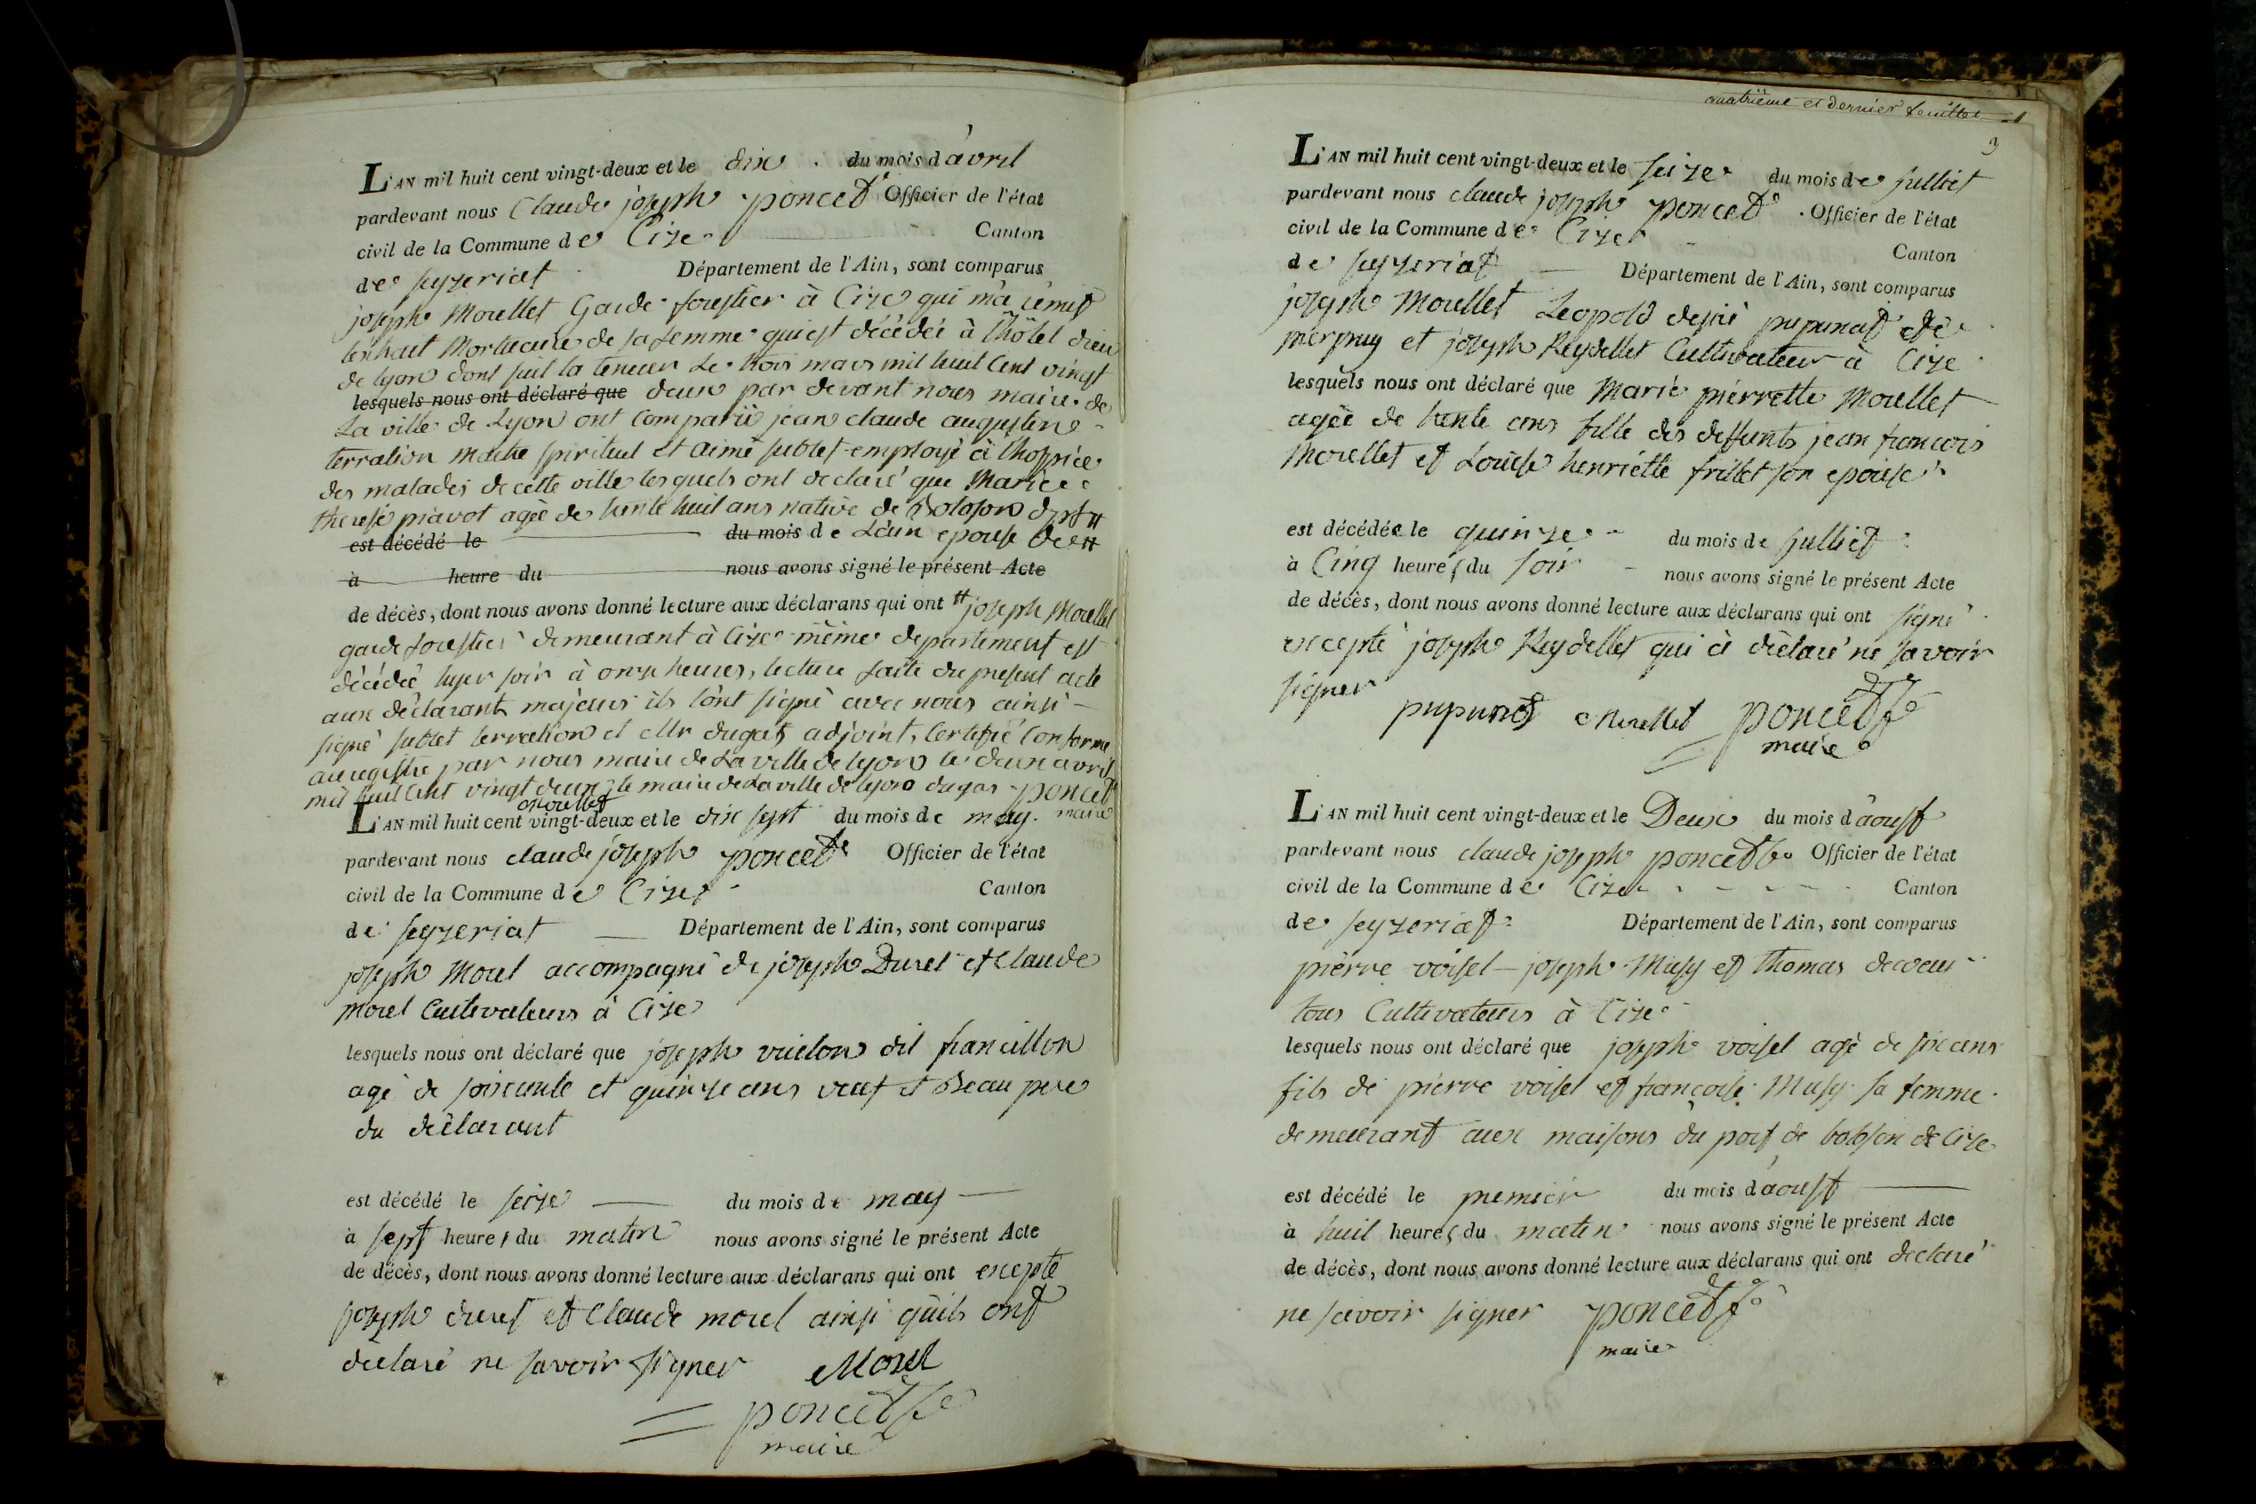 L'AN mil huit cent vingt-deux et le dix du mois d'avril
pardevant nous Claude joseph poncet Officier de l'état
civil de la Commune de Cize Canton
de seyzeriat Département de l'Ain, sont comparus
joseph Morellet Garde forestier à Cize qui m'a remis
lextrait Mortuaire de sa femme qui est décédée à l'hôtel dieu
de lyon dont suit la teneur Le trois mars mil huit Cent vingt
lesquels nous ont déclaré que deux par devant nous maire de
La ville de Lyon ont comparu jean claude augustin
terralion maitre spirituel et aimé sublet employé à l'hospice
des malades de cette ville lesquels ont declaré que Marie
therese piavot agée de trente huit ans native de Doloson dpt #
est décédé le du mois de Lain epouse de #
à heure du nous avons signé le présent Acte
de décès, dont nous avons donné lecture aux déclarans qui ont # joseph Morellet
garde forestier demeurant à Cize même departement est
décédée hyer soir à onze heures, lecture faite du present acte
aux déclarants majeurs ils l'ont signé avec nous ainsi
signé sublet terralion et Mr dugas adjoint, Certifié Conforme
au registre par nous maire de La ville de lyon le deux avril
mil huit Cent vingt deux le maire de La ville de lyon dugas poncet
morellet maire
L'AN mil huit cent vingt-deux et le dix sept du mois de may
pardevant nous claude joseph poncet Officier de l'état
civil de la Commune de Cize Canton
de seyzeriat Département de l'Ain, sont comparus
joseph Morel accompagné de joseph Duret et Claude
morel Cultivateurs à Cize
lesquels nous ont déclaré que joseph vuilon dit francillon
agé de soixante et quinze ans veuf et Beau pere
du déclarant
est décédé le seize du mois de may
à sept heures du matin nous avons signé le présent Acte
de décès, dont nous avons donné lecture aux déclarans qui ont excepté
joseph duret et Claude morel ainsi qu'ils ont
déclaré ne savoir signer Morel
poncet
maire
quatrième et dernier feuillet
3
L'AN mil huit cent vingt-deux et le seize du mois de julliet
pardevant nous claude joseph poncet Officier de l'état
civil de la Commune de Cize Canton
de seyzeriat Département de l'Ain, sont comparus
joseph Morellet Leopold desiré pupunat de
merpuy et joseph Reydellet Cultivateur à Cize
lesquels nous ont déclaré que Marie pierrette Morellet
agée de trente ans fille des deffunts jean francois
Morellet et Louise henriette frillet son epouse
est décédée le quinze du mois de julliet
à Cinq heures du soir nous avons signé le présent Acte
de décès, dont nous avons donné lecture aux déclarans qui ont signé
excepté joseph Reydellet qui à déclaré ne savoir
signer
pupunat Morellet poncet
maire
L'AN mil huit cent vingt-deux et le Deux du mois d'aoust
pardevant nous claude joseph poncet Officier de l'état
civil de la Commune de Cize Canton
de seyzeriat Département de l'Ain, sont comparus
pierre voisel joseph Musy et thomas decoeur
tous Cultivateurs à Cize
lesquels nous ont déclaré que joseph voisel agé de six ans
fils de pierre voisel et françoise Musy sa femme
demeurant aux maisons du port de bolozon de Cize
est décédé le premier du mois d'aoust
à huit heures du matin nous avons signé le présent Acte
de décès, dont nous avons donné lecture aux déclarans qui ont declaré
ne savoir signer poncet
maire